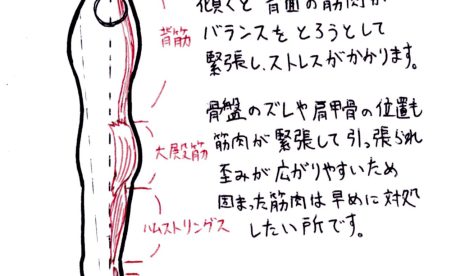 傾くと背面の筋肉が
バランスをとろうとして
緊張し、ストレスがかかります。
骨盤のズレや肩甲骨の位置も
筋肉が緊張して引っ張られ
歪みが広がりやすいため
固まった筋肉は早めに対処
したい所です。
背筋
大殿筋
ハムストリングス